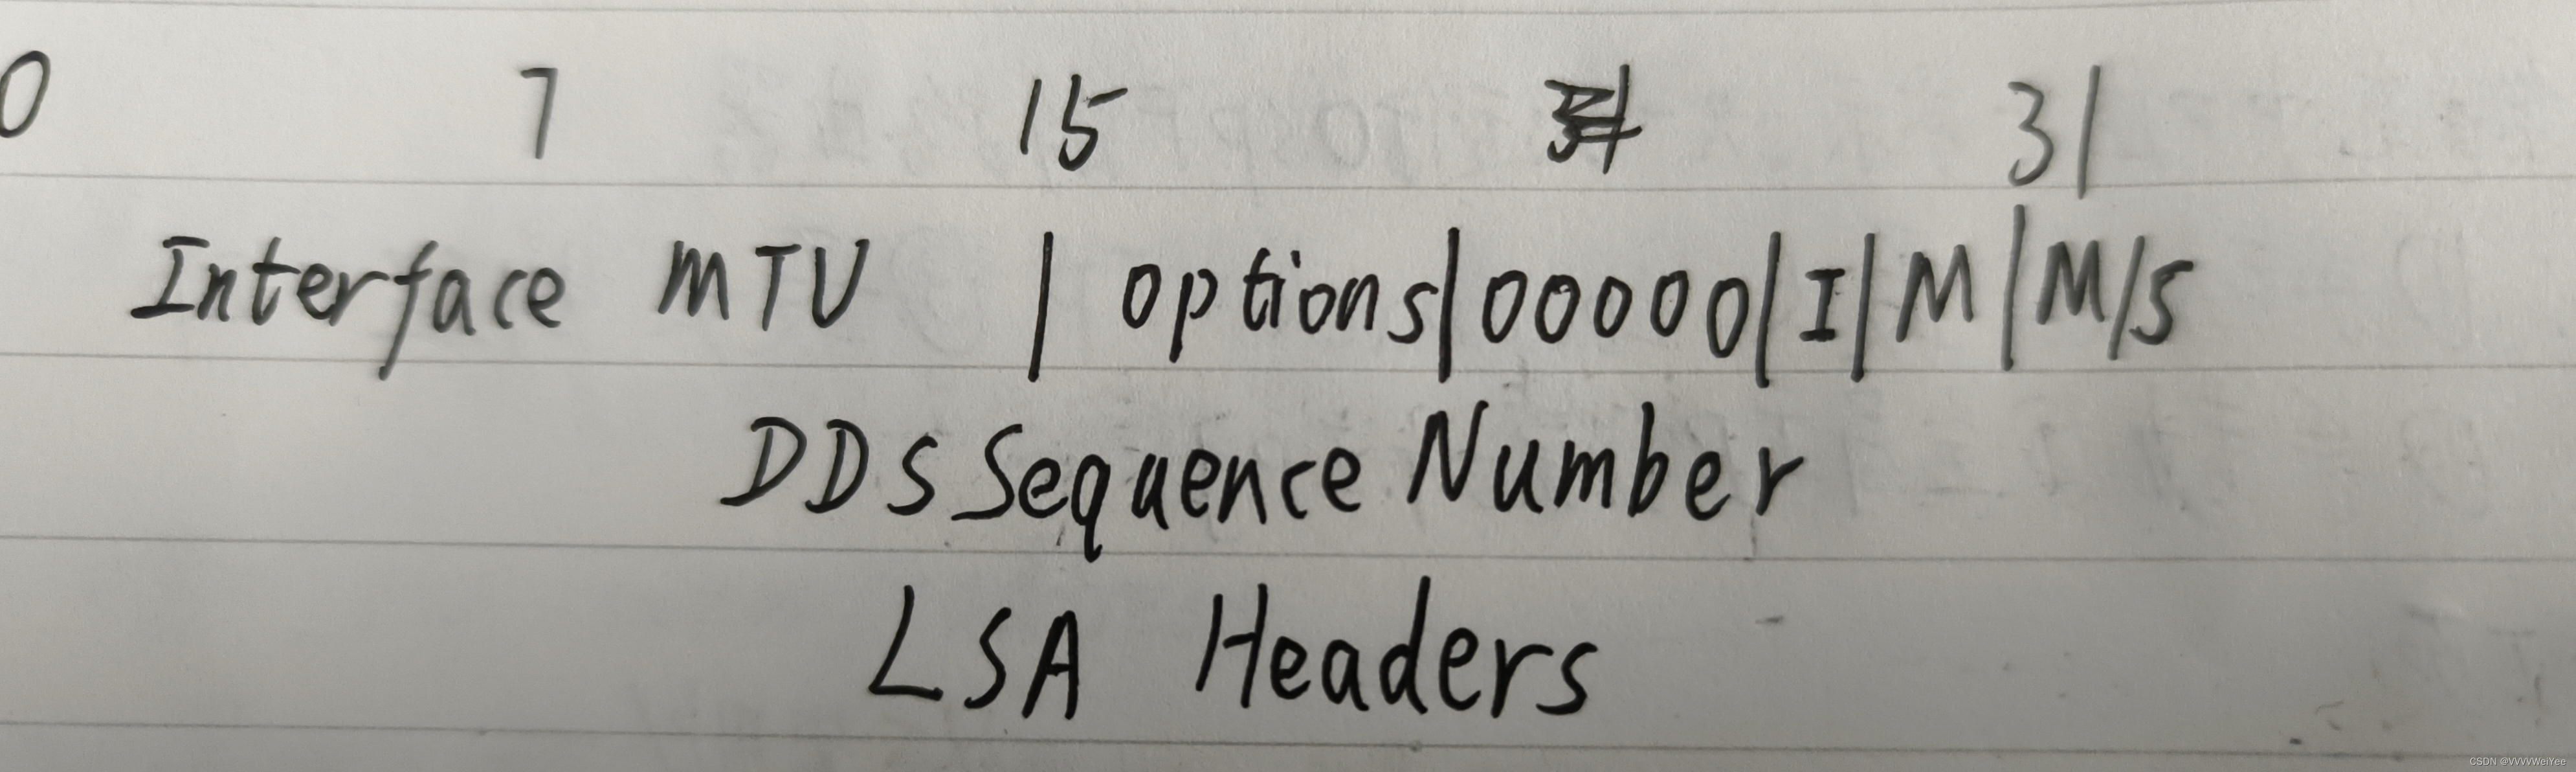 0 7 15 31
Interface MTU | options | 00000 | I | M | M/S
DDS Sequence Number
LSA Headers
CSDN @VVVVWeiYee